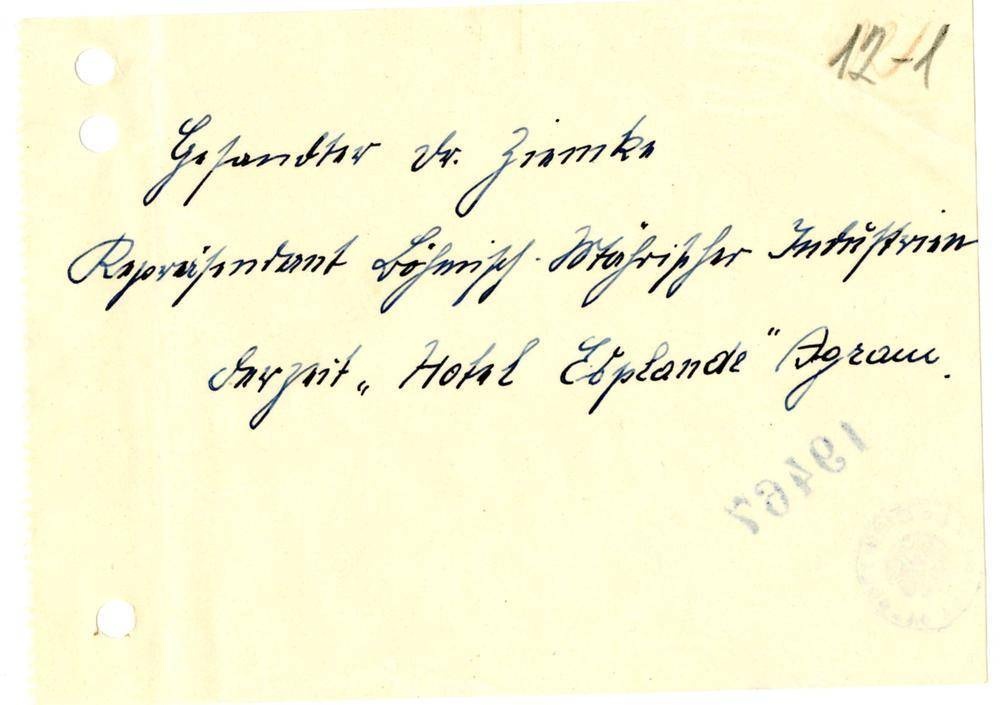 12-1
Gesandter Dr. Ziemke
Repräsendant Böhmisch-Mährischer Industrien
derzeit „Hotel Esplande" Agram.
19467